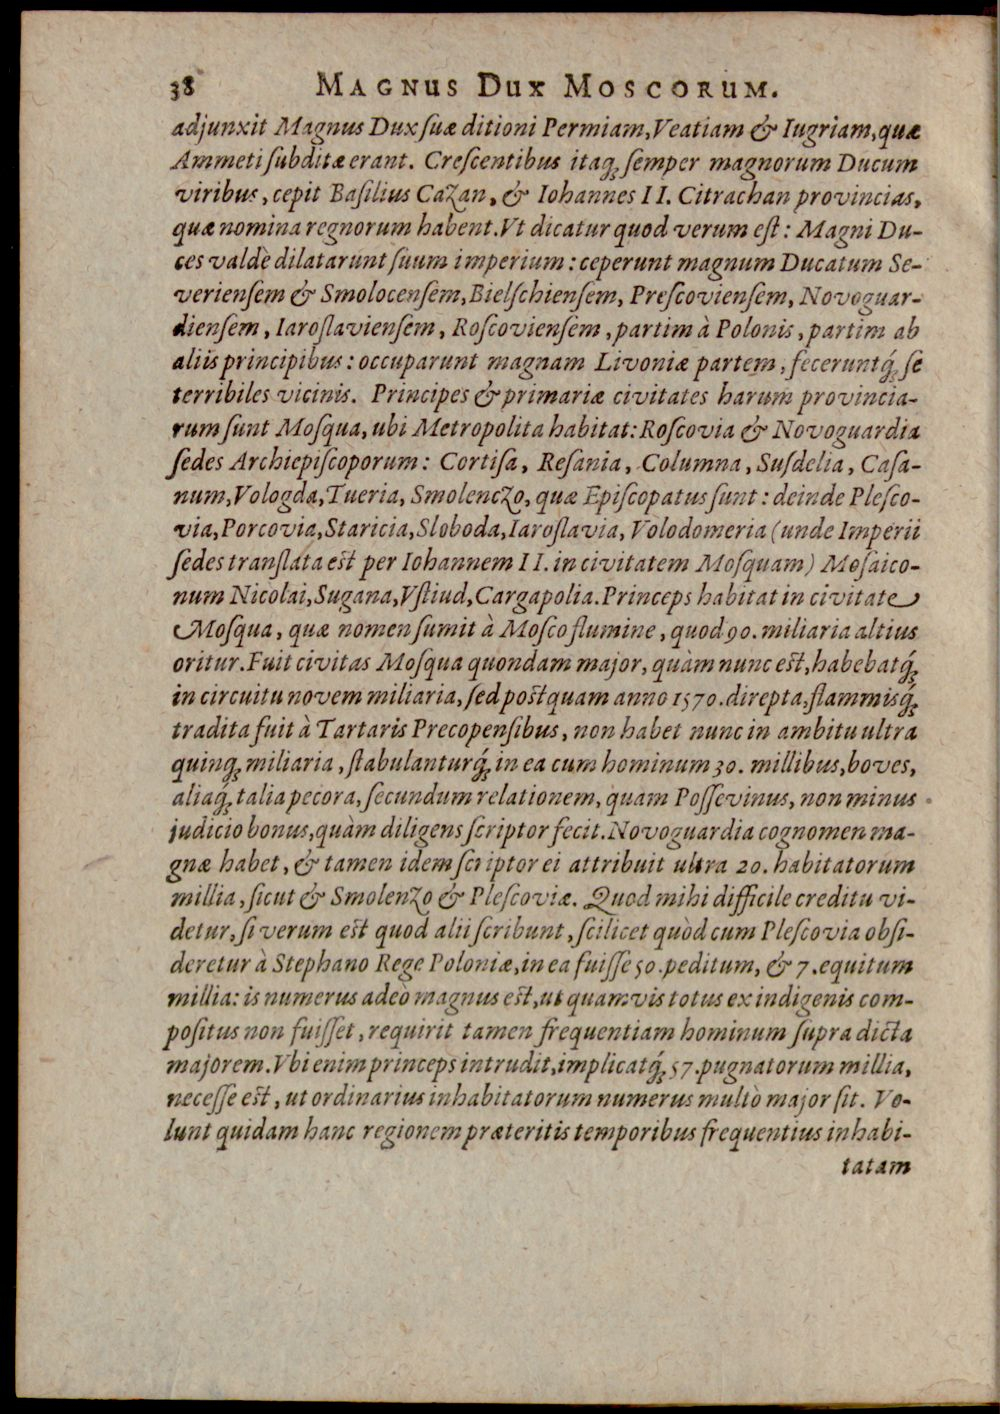 38 MAGNUS DUX MOSCORUM.
adjunxit Magnus Dux ſuæ ditioni Permiam, Veatiam & Iugriam, quæ
Ammeti ſubditæ erant. Creſcentibus itaq; ſemper magnorum Ducum
viribus, cepit Baſilius Cazan, & Iohannes II. Citrachan provincias,
quæ nomina regnorum habent. Vt dicatur quod verum eſt: Magni Du-
ces valdè dilatarunt ſuum imperium: ceperunt magnum Ducatum Se-
verienſem & Smolocenſem, Bielſchienſem, Preſcovienſem, Novoguar-
dienſem, Iaroſlavienſem, Roſcovienſem, partim à Polonis, partim ab
aliis principibus: occuparunt magnam Livoniæ partem, feceruntq́; ſe
terribiles vicinis. Principes & primariæ civitates harum provincia-
rum ſunt Moſqua, ubi Metropolita habitat: Roſcovia & Novoguardia
ſedes Archiepiſcoporum: Cortiſa, Reſania, Columna, Suſdelia, Caſa-
num, Vologda, Tueria, Smolenczo, quæ Epiſcopatus ſunt: deinde Pleſco-
via, Porcovia, Staricia, Sloboda, Iaroſlavia, Volodomeria (unde Imperii
ſedes tranſlata eſt per Iohannem II. in civitatem Moſquam) Moſaico-
num Nicolai, Sugana, Vſtiud, Cargapolia. Princeps habitat in civitate
Moſqua, quæ nomen ſumit à Moſco flumine, quod 90. miliaria altius
oritur. Fuit civitas Moſqua quondam major, quàm nunc eſt, habebatq́;
in circuitu novem miliaria, ſed poſtquam anno 1570. direpta, flammisq́;
tradita fuit à Tartaris Precopenſibus, non habet nunc in ambitu ultra
quinq; miliaria, ſtabulanturq́; in ea cum hominum 30. millibus, boves,
aliaq́; talia pecora, ſecundum relationem, quam Poſſevinus, non minus
judicio bonus, quàm diligens ſcriptor fecit. Novoguardia cognomen ma-
gnæ habet, & tamen idem ſcriptor ei attribuit ultra 20. habitatorum
millia, ſicut & Smolenzo & Pleſcoviæ. Quod mihi difficile creditu vi-
detur, ſi verum eſt quod alii ſcribunt, ſcilicet quòd cum Pleſcovia obſi-
deretur à Stephano Rege Poloniæ, in ea fuiſſe 50. peditum, & 7. equitum
millia: is numerus adeò magnus eſt, ut quamvis totus ex indigenis com-
poſitus non fuiſſet, requirit tamen frequentiam hominum ſupra dicta
majorem. Vbi enim princeps intrudit, implicatq́; 57. pugnatorum millia,
neceſſe eſt, ut ordinarius inhabitatorum numerus multò major ſit. Vo-
lunt quidam hanc regionem præteritis temporibus frequentius inhabi-
tatam